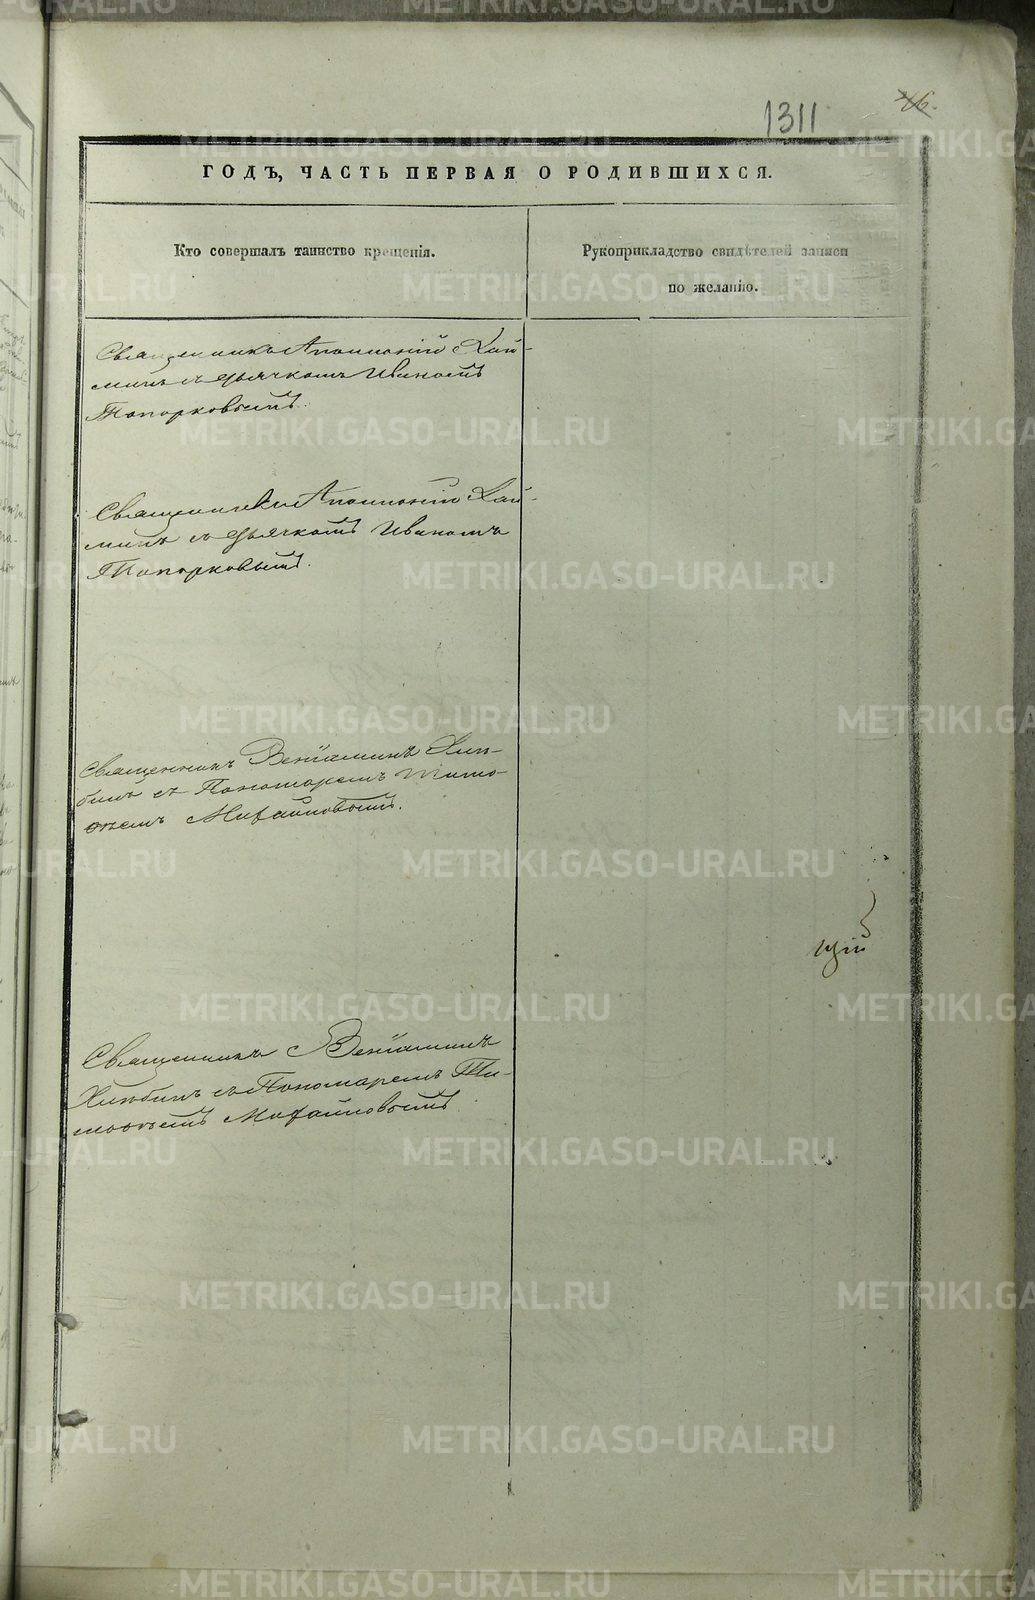 1311
46.
ГОДЪ, ЧАСТЬ ПЕРВАЯ О РОДИВШИХСЯ.
Кто совершалъ таинство крещенія.
Рукоприкладство свидѣтелей записи
по желанію.
Священникъ Аполлоній
съ дьячкомъ Иваномъ
Топорковымъ.
Священникъ Аполлоній
съ дьячкомъ Иваномъ
Топорковымъ.
Священникъ Веніаминъ Хлю-
бинъ съ Пономаремъ Тимо-
ѳеемъ Михайловымъ.
щій
Священникъ Веніаминъ
Хлюбинъ съ Пономаремъ Ти-
моѳеемъ Михайловымъ.
METRIKI.GASO-URAL.RU